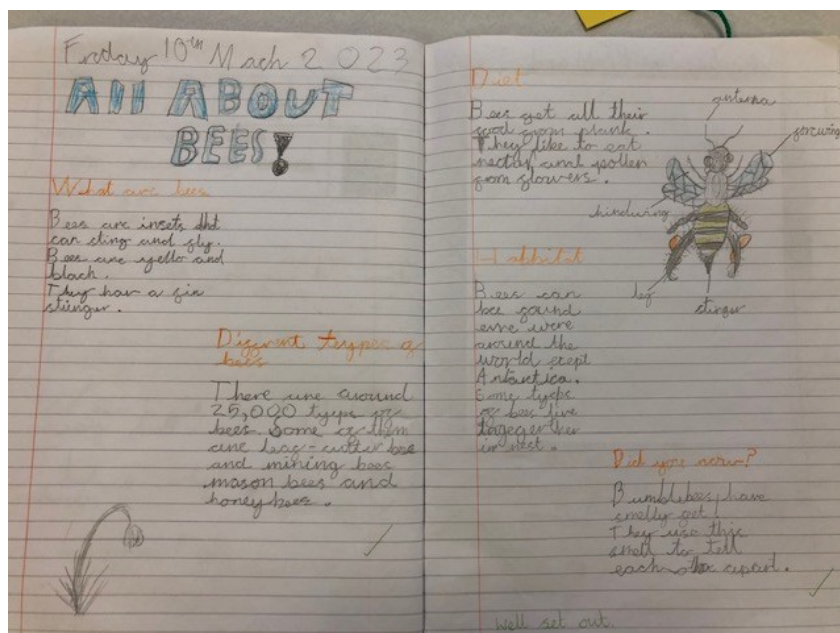 Friday 10th Mach 2023
All ABOUT
BEES!
What are bees
Bees are insets tht
can sting and fly.
Bees are yello and
black.
They hav a fin
stinger.
Diffrent teypes of
bees
There are around
25,000 tyeps of
bees. Some of them
are leag-cutter bee
and mining bees
mason bees and
honey bees.
Diet
Bees get all their
food from plants.
They like to eat
nectar and pollen
from flowers.
antenna
forewing
hindwing
leg
stinger
Habbitat
Bees can
bee found
evre were
around the
world exept
Antartica.
Some tyeps
of bees live
togegerther
in nest.
Did you now?
Bumblebees have
smelly feet!
They use this
smell to tell
each other apart.
Well set out.